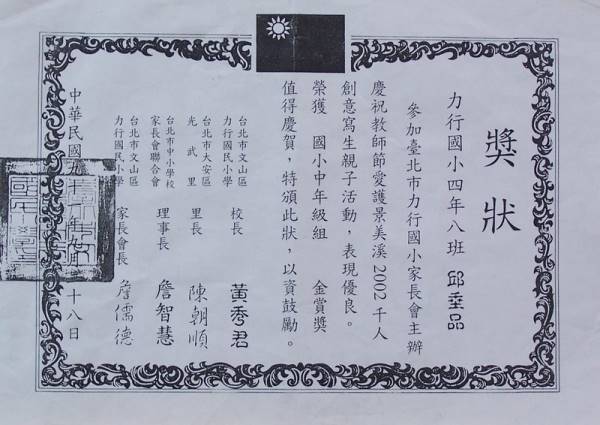 獎狀
力行國小四年八班 邱垂品
參加臺北市力行國小家長會主辦
慶祝教師節愛護景美溪2002千人
創意寫生親子活動，表現優良。
榮獲 國小中年級組 金賞獎
值得慶賀，特頒此狀，以資鼓勵。
台北市文山區
力行國民小學 校長 黃秀君
台北市大安區
光武里 里長 陳朝順
台北市中小學校
家長會聯合會 理事長 詹智慧
台北市文山區
力行國民小學 家長會長 詹儒德
中華民國九十一年 十八日